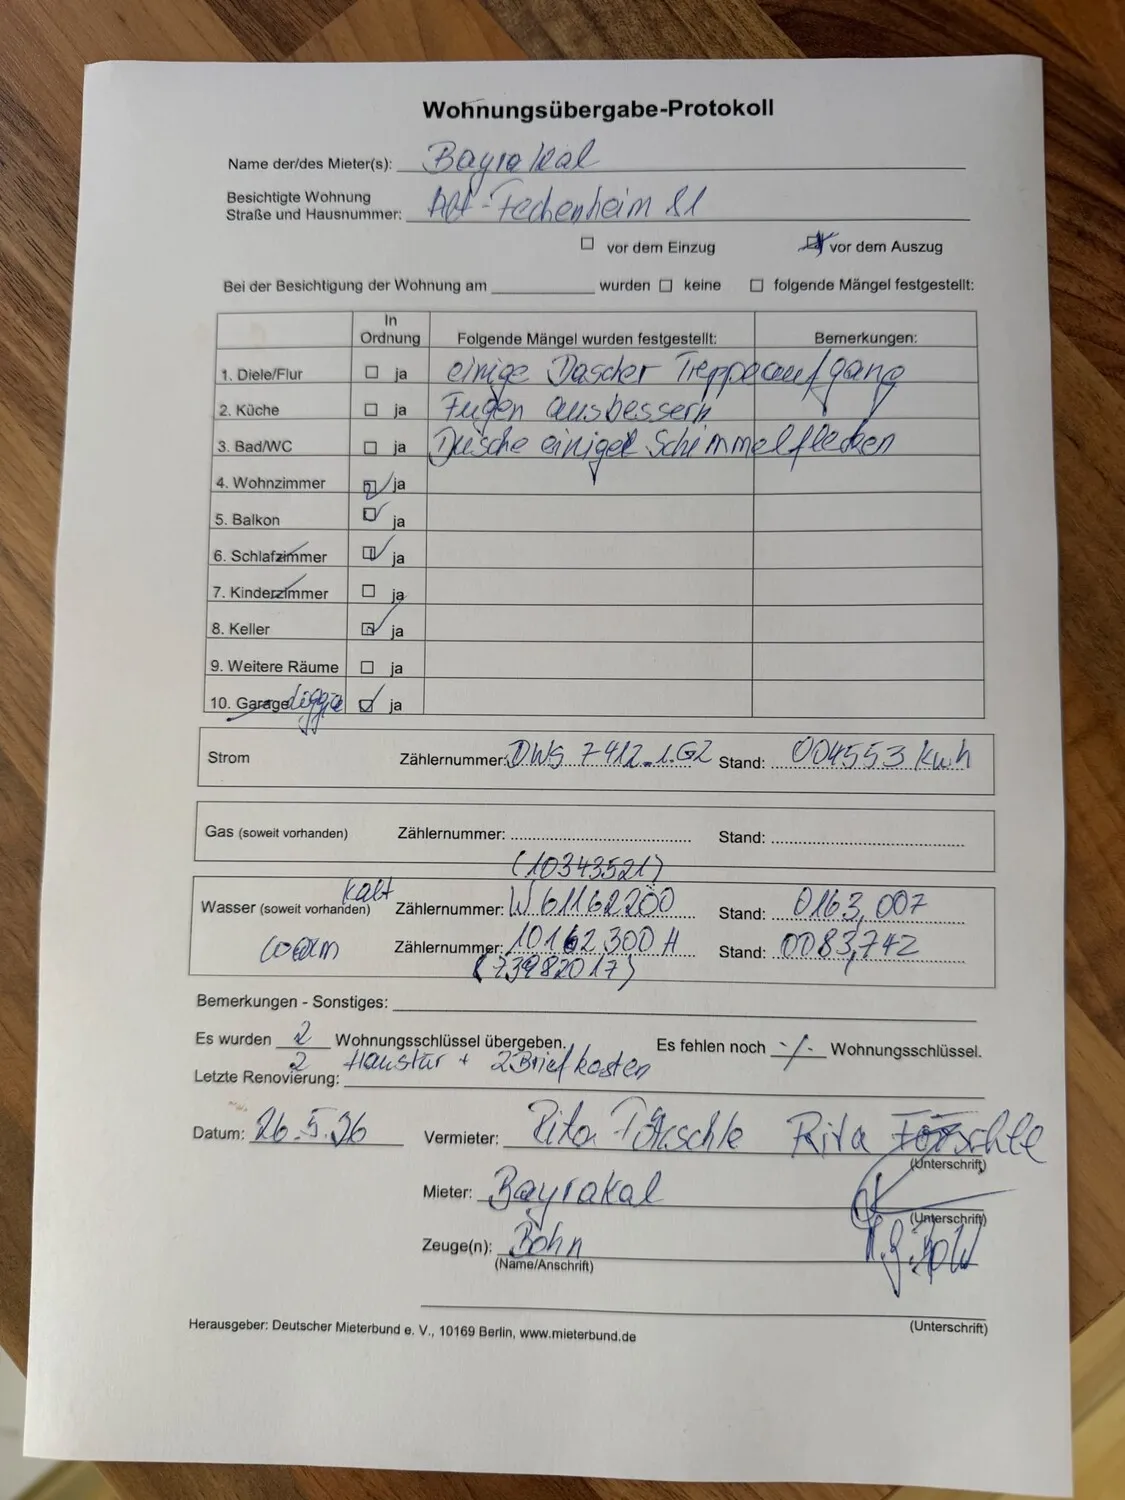 Wohnungsübergabe-Protokoll
Name der/des Mieter(s): Bayrakal
Besichtigte Wohnung
Straße und Hausnummer: Alt-Fechenheim 81
☐ vor dem Einzug ☒ vor dem Auszug
Bei der Besichtigung der Wohnung am ________ wurden ☐ keine ☐ folgende Mängel festgestellt:
In Ordnung Folgende Mängel wurden festgestellt: Bemerkungen:
1. Diele/Flur ☐ ja einige Treppeaufgang
2. Küche ☐ ja Fugen ausbessern
3. Bad/WC ☐ ja Dusche einige Schimmelflecken
4. Wohnzimmer ☑ ja
5. Balkon ☑ ja
6. Schlafzimmer ☑ ja
7. Kinderzimmer ☐ ja
8. Keller ☑ ja
9. Weitere Räume ☐ ja
10. Garage ☑ ja
Strom Zählernummer: DWS 7412.1.G2 Stand: 004553 kwh
Gas (soweit vorhanden) Zählernummer: Stand:
(10343521)
Wasser (soweit vorhanden) Kalt Zählernummer: W61162200 Stand: 0163,007
warm Zählernummer: 10162300 H Stand: 0083,742
(73982017)
Bemerkungen - Sonstiges:
Es wurden 2 Wohnungsschlüssel übergeben. Es fehlen noch -/- Wohnungsschlüssel.
2 Haustür + 2 Briefkasten
Letzte Renovierung:
Datum: 26.5.26 Vermieter: Rita Rita
(Unterschrift)
Mieter: Bayrakal
(Unterschrift)
Zeuge(n): Bohn
(Name/Anschrift)
(Unterschrift)
Herausgeber: Deutscher Mieterbund e. V., 10169 Berlin, www.mieterbund.de